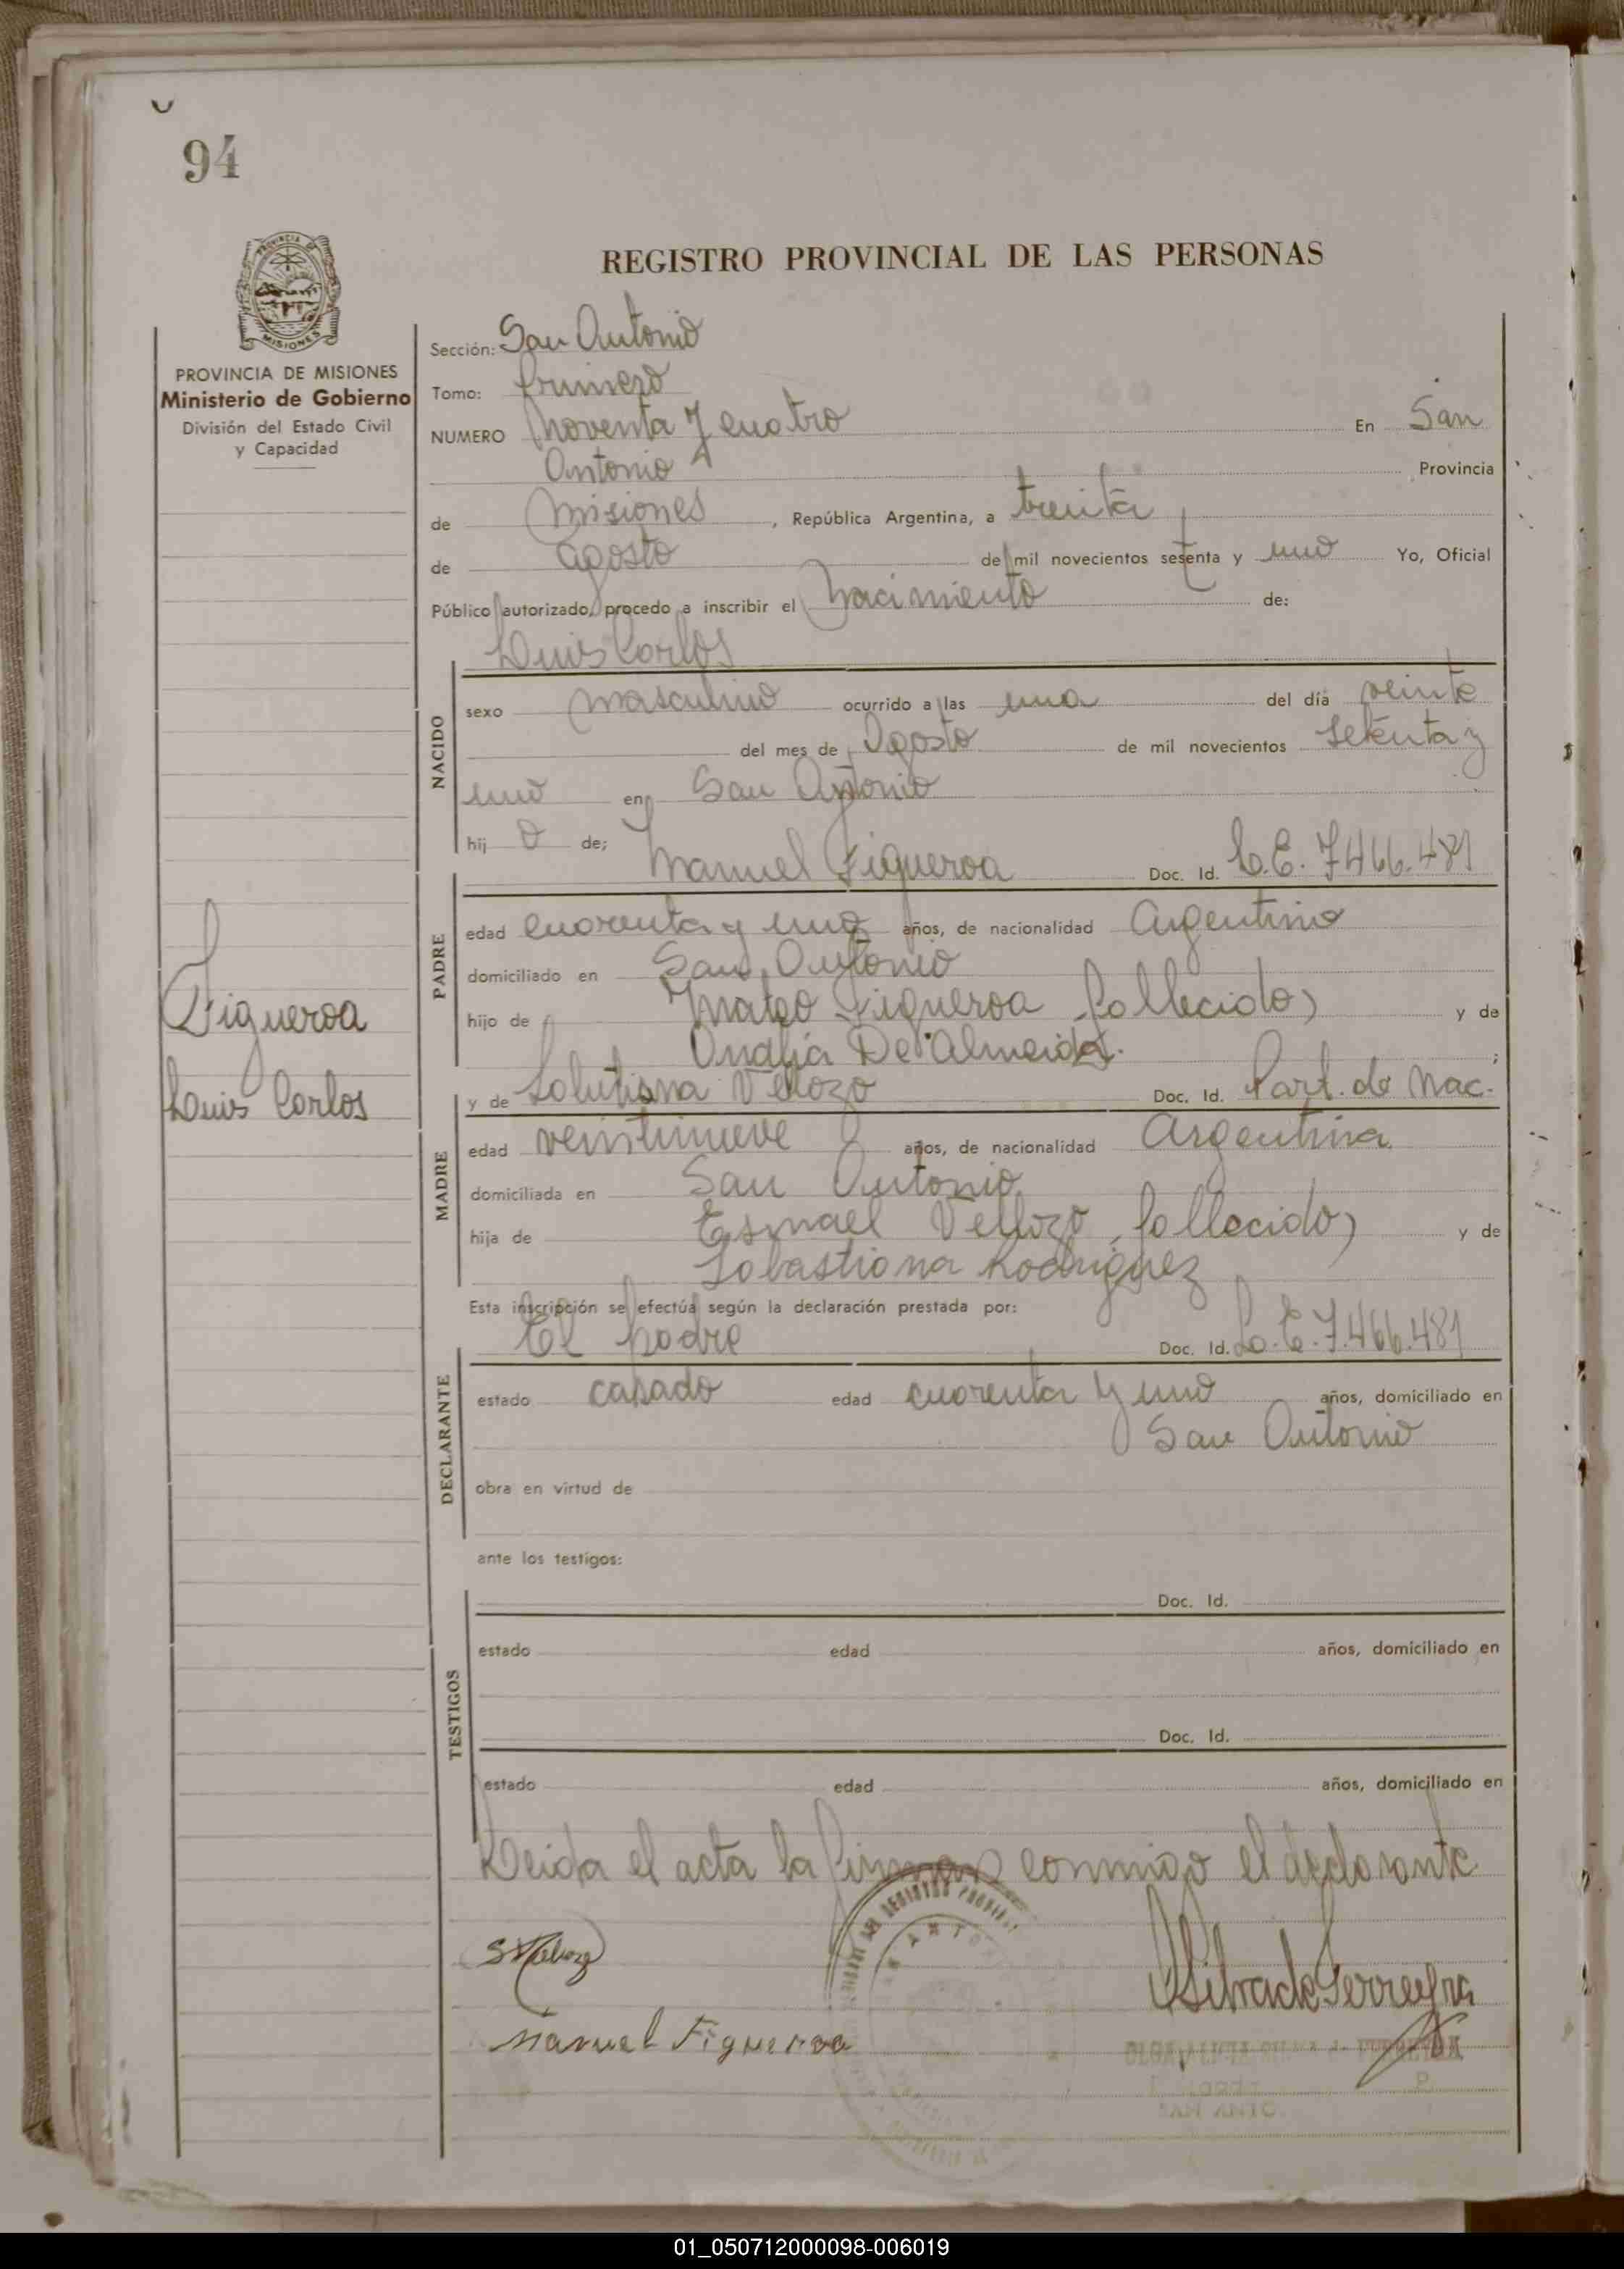 94
REGISTRO PROVINCIAL DE LAS PERSONAS
PROVINCIA DE
MISIONES
PROVINCIA DE MISIONES
Ministerio de Gobierno
División del Estado Civil
y Capacidad
Sección: San Antonio
Tomo: Primero
NUMERO Noventa y cuatro En San
Antonio Provincia
de Misiones, República Argentina, a treinta
de Agosto de mil novecientos setenta y uno Yo, Oficial
Público autorizado, procedo a inscribir el Nacimiento de:
Luis Carlos
NACIDO
sexo masculino ocurrido a las una del día veinte
del mes de Agosto de mil novecientos setenta y
uno en San Antonio
hij o de; Manuel Figueroa Doc. Id. L.E. 7.466.481
PADRE
edad cuarenta y uno años, de nacionalidad Argentino
domiciliado en San Antonio
hijo de Mateo Figueroa (fallecido) y de
De Almeida.
Figueroa
Luis Carlos
y de Vellozo Doc. Id. Part. de Nac.
MADRE
edad veintinueve años, de nacionalidad Argentina
domiciliada en San Antonio
hija de Esmael Vellozo (fallecido) y de
Sebastiana Rodriguez
Esta inscripción se efectúa según la declaración prestada por:
El padre Doc. Id. L.E. 7.466.481
DECLARANTE
estado casado edad cuarenta y uno años, domiciliado en
San Antonio
obra en virtud de
ante los testigos:
TESTIGOS
Doc. Id.
estado edad años, domiciliado en
Doc. Id.
estado edad años, domiciliado en
Leida el acta la firman conmigo el declarante
Manuel Figueroa
SAN ANTO
01_050712000098-006019